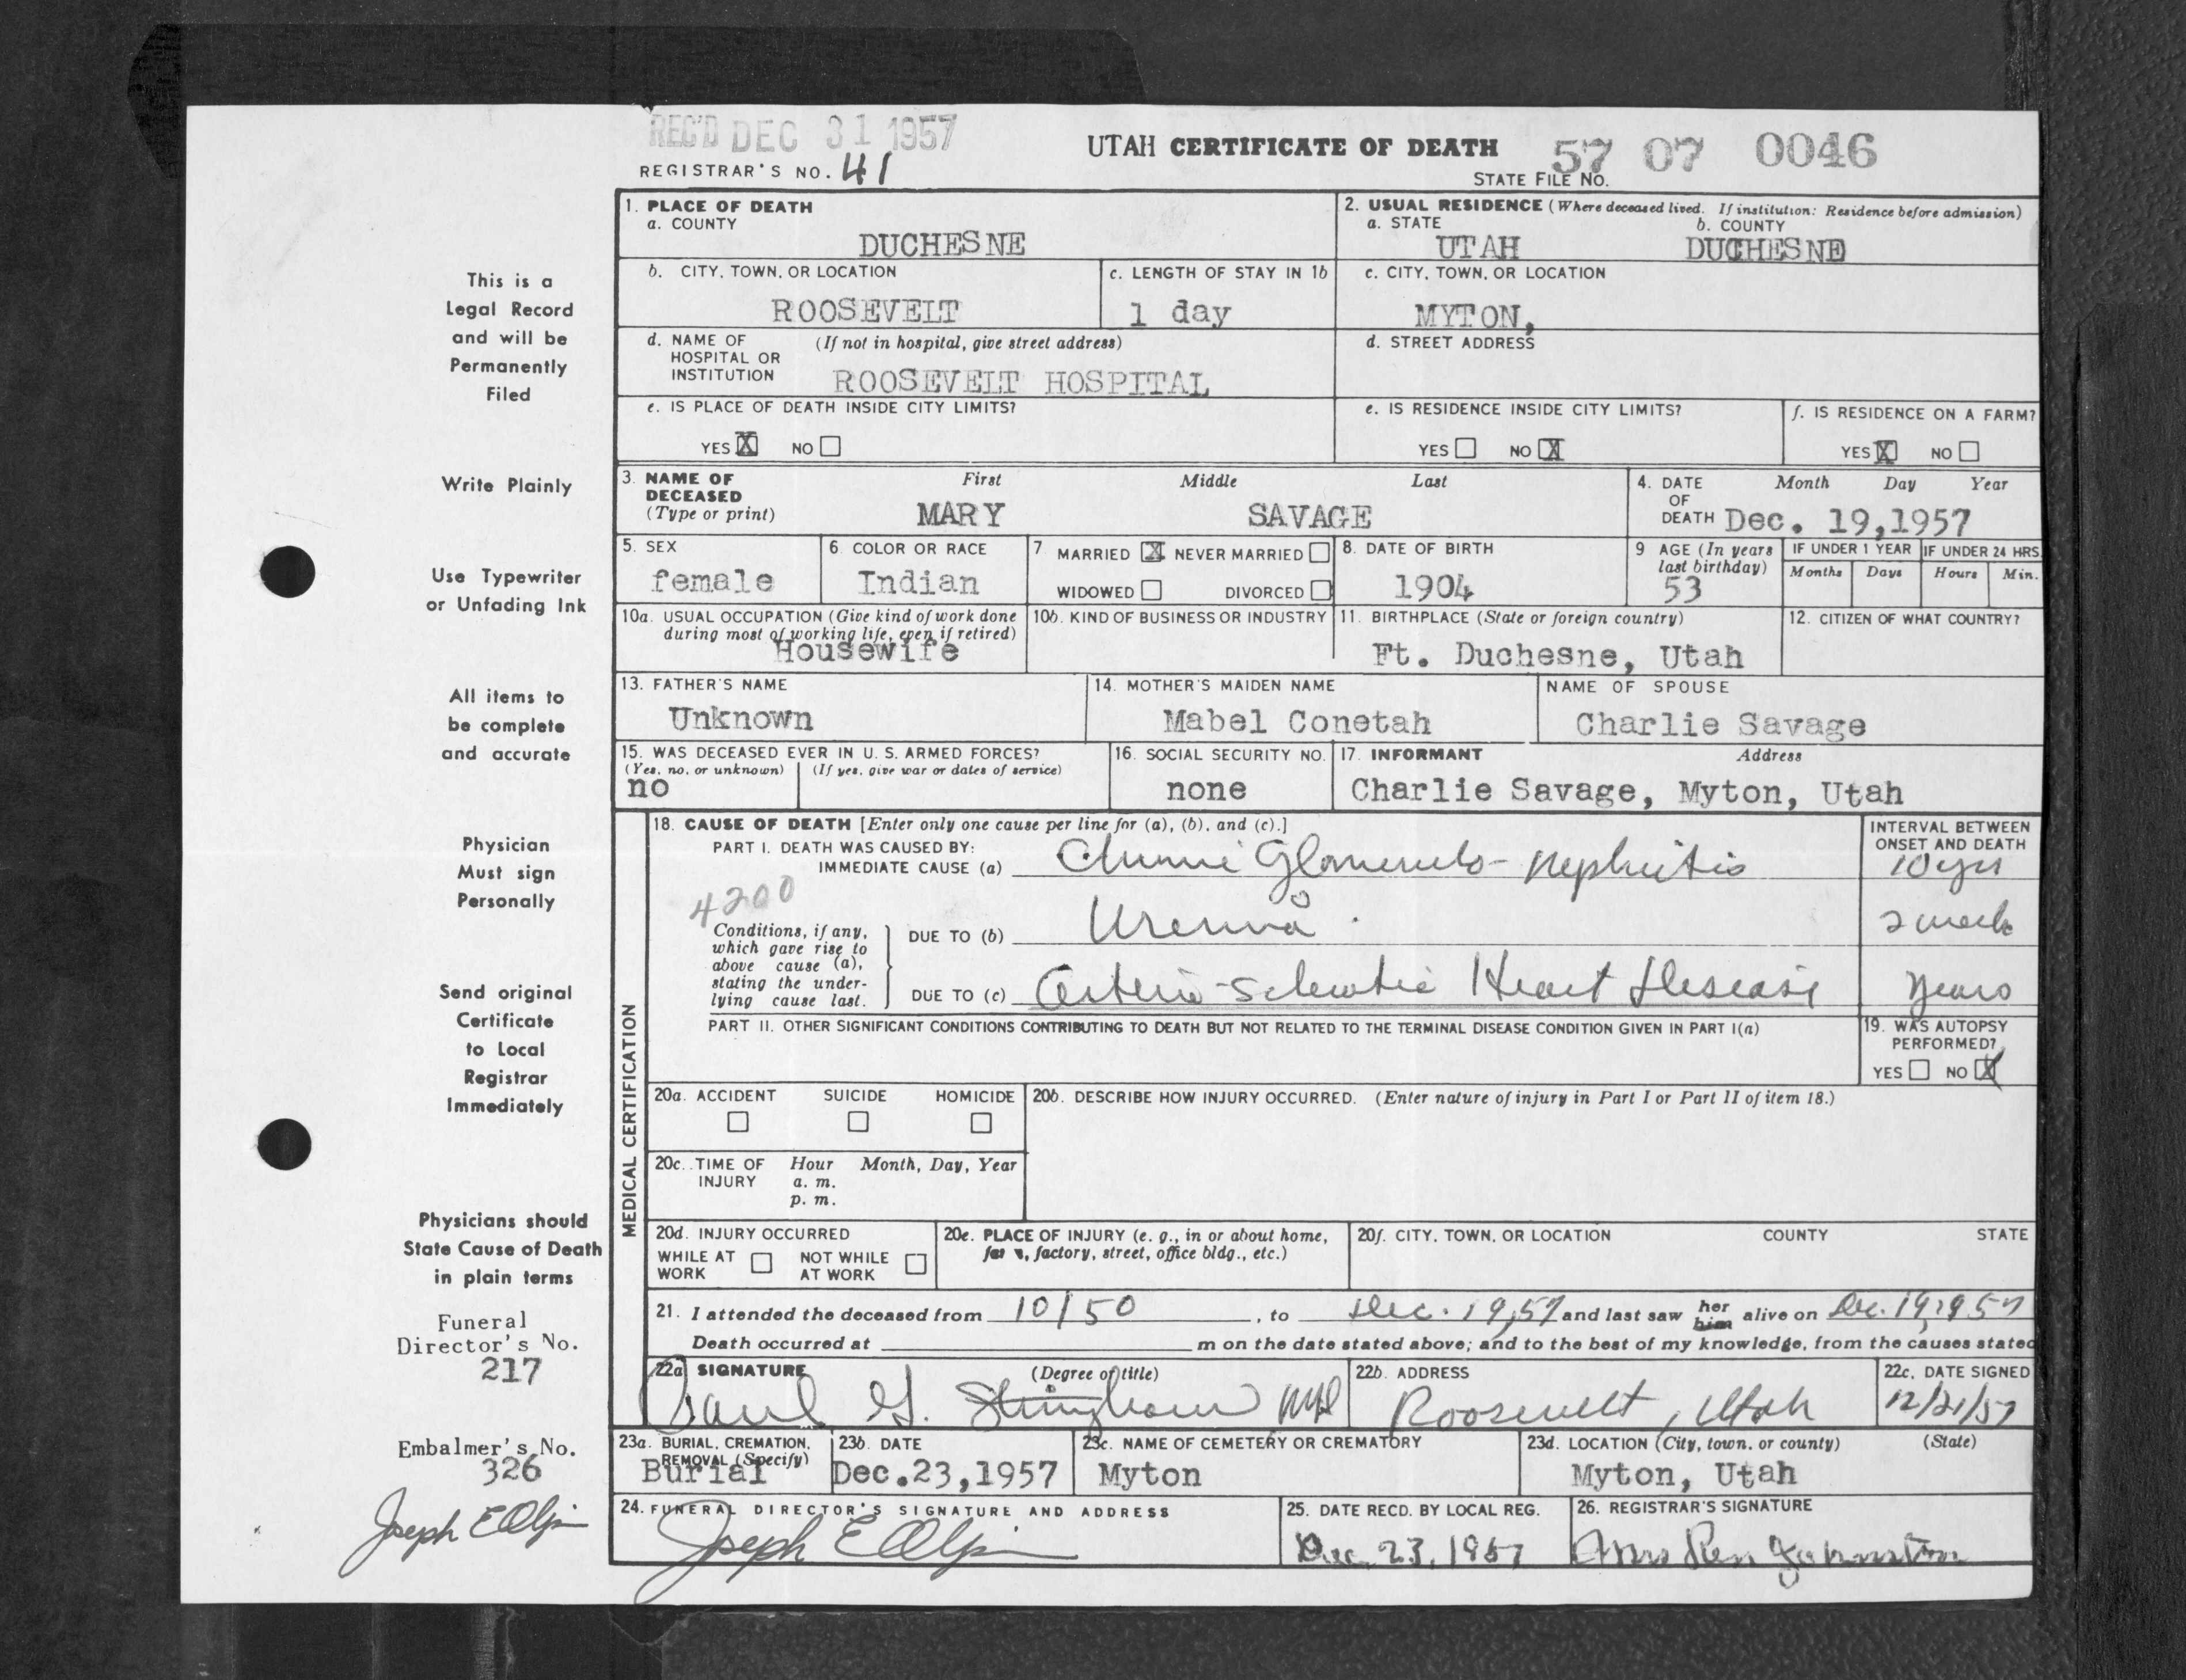 REC'D DEC 31 1957
REGISTRAR'S NO. 41
UTAH CERTIFICATE OF DEATH
57 07 0046
STATE FILE NO.
This is a
Legal Record
and will be
Permanently
Filed
Write Plainly
Use Typewriter
or Unfading Ink
All items to
be complete
and accurate
Physician
Must sign
Personally
Send original
Certificate
to Local
Registrar
Immediately
Physicians should
State Cause of Death
in plain terms
Funeral
Director's No.
217
Embalmer's No.
326
Joseph E Olpin
1. PLACE OF DEATH
a. COUNTY
DUCHESNE
2. USUAL RESIDENCE (Where deceased lived. If institution: Residence before admission)
a. STATE
b. COUNTY
UTAH DUCHESNE
b. CITY, TOWN, OR LOCATION
ROOSEVELT
c. LENGTH OF STAY IN 1b
1 day
c. CITY, TOWN, OR LOCATION
MYTON,
d. NAME OF HOSPITAL OR INSTITUTION (If not in hospital, give street address)
ROOSEVELT HOSPITAL
d. STREET ADDRESS
e. IS PLACE OF DEATH INSIDE CITY LIMITS?
YES X NO
e. IS RESIDENCE INSIDE CITY LIMITS?
YES NO X
f. IS RESIDENCE ON A FARM?
YES X NO
3. NAME OF DECEASED (Type or print)
First Middle Last
MARY SAVAGE
4. DATE OF DEATH
Month Day Year
Dec. 19,1957
5. SEX
female
6. COLOR OR RACE
Indian
7 MARRIED X NEVER MARRIED
WIDOWED DIVORCED
8. DATE OF BIRTH
1904
9 AGE (In years last birthday)
53
IF UNDER 1 YEAR
Months Days
IF UNDER 24 HRS.
Hours Min.
10a. USUAL OCCUPATION (Give kind of work done during most of working life, even if retired)
Housewife
10b. KIND OF BUSINESS OR INDUSTRY
11. BIRTHPLACE (State or foreign country)
Ft. Duchesne, Utah
12. CITIZEN OF WHAT COUNTRY?
13. FATHER'S NAME
Unknown
14. MOTHER'S MAIDEN NAME
Mabel Conetah
NAME OF SPOUSE
Charlie Savage
15. WAS DECEASED EVER IN U. S. ARMED FORCES?
(Yes, no, or unknown) (If yes, give war or dates of service)
no
16. SOCIAL SECURITY NO.
none
17. INFORMANT Address
Charlie Savage, Myton, Utah
MEDICAL CERTIFICATION
18. CAUSE OF DEATH [Enter only one cause per line for (a), (b), and (c).]
PART I. DEATH WAS CAUSED BY:
IMMEDIATE CAUSE (a) Chronic Glomerulo-nephritis
INTERVAL BETWEEN ONSET AND DEATH
10 yrs
4200
Conditions, if any, which gave rise to above cause (a), stating the underlying cause last.
DUE TO (b) Uremia
2 weeks
DUE TO (c) Arterio-sclerotic Heart Disease
years
PART II. OTHER SIGNIFICANT CONDITIONS CONTRIBUTING TO DEATH BUT NOT RELATED TO THE TERMINAL DISEASE CONDITION GIVEN IN PART I(a)
19. WAS AUTOPSY PERFORMED?
YES NO X
20a. ACCIDENT SUICIDE HOMICIDE
20b. DESCRIBE HOW INJURY OCCURRED. (Enter nature of injury in Part I or Part II of item 18.)
20c. TIME OF INJURY Hour Month, Day, Year
a. m.
p. m.
20d. INJURY OCCURRED
WHILE AT WORK NOT WHILE AT WORK
20e. PLACE OF INJURY (e. g., in or about home, farm, factory, street, office bldg., etc.)
20f. CITY, TOWN, OR LOCATION COUNTY STATE
21. I attended the deceased from 10/50, to Dec. 19,57 and last saw her him alive on Dec. 19,1957
Death occurred at m on the date stated above; and to the best of my knowledge, from the causes stated
22a. SIGNATURE (Degree of title)
Paul G. Stringham MD
22b. ADDRESS
Roosevelt, Utah
22c. DATE SIGNED
12/21/57
23a. BURIAL, CREMATION, REMOVAL (Specify)
Burial
23b. DATE
Dec.23,1957
23c. NAME OF CEMETERY OR CREMATORY
Myton
23d. LOCATION (City, town, or county) (State)
Myton, Utah
24. FUNERAL DIRECTOR'S SIGNATURE AND ADDRESS
Joseph E Olpin
25. DATE RECD. BY LOCAL REG.
Dec 23, 1957
26. REGISTRAR'S SIGNATURE
Mrs Ren Johnston